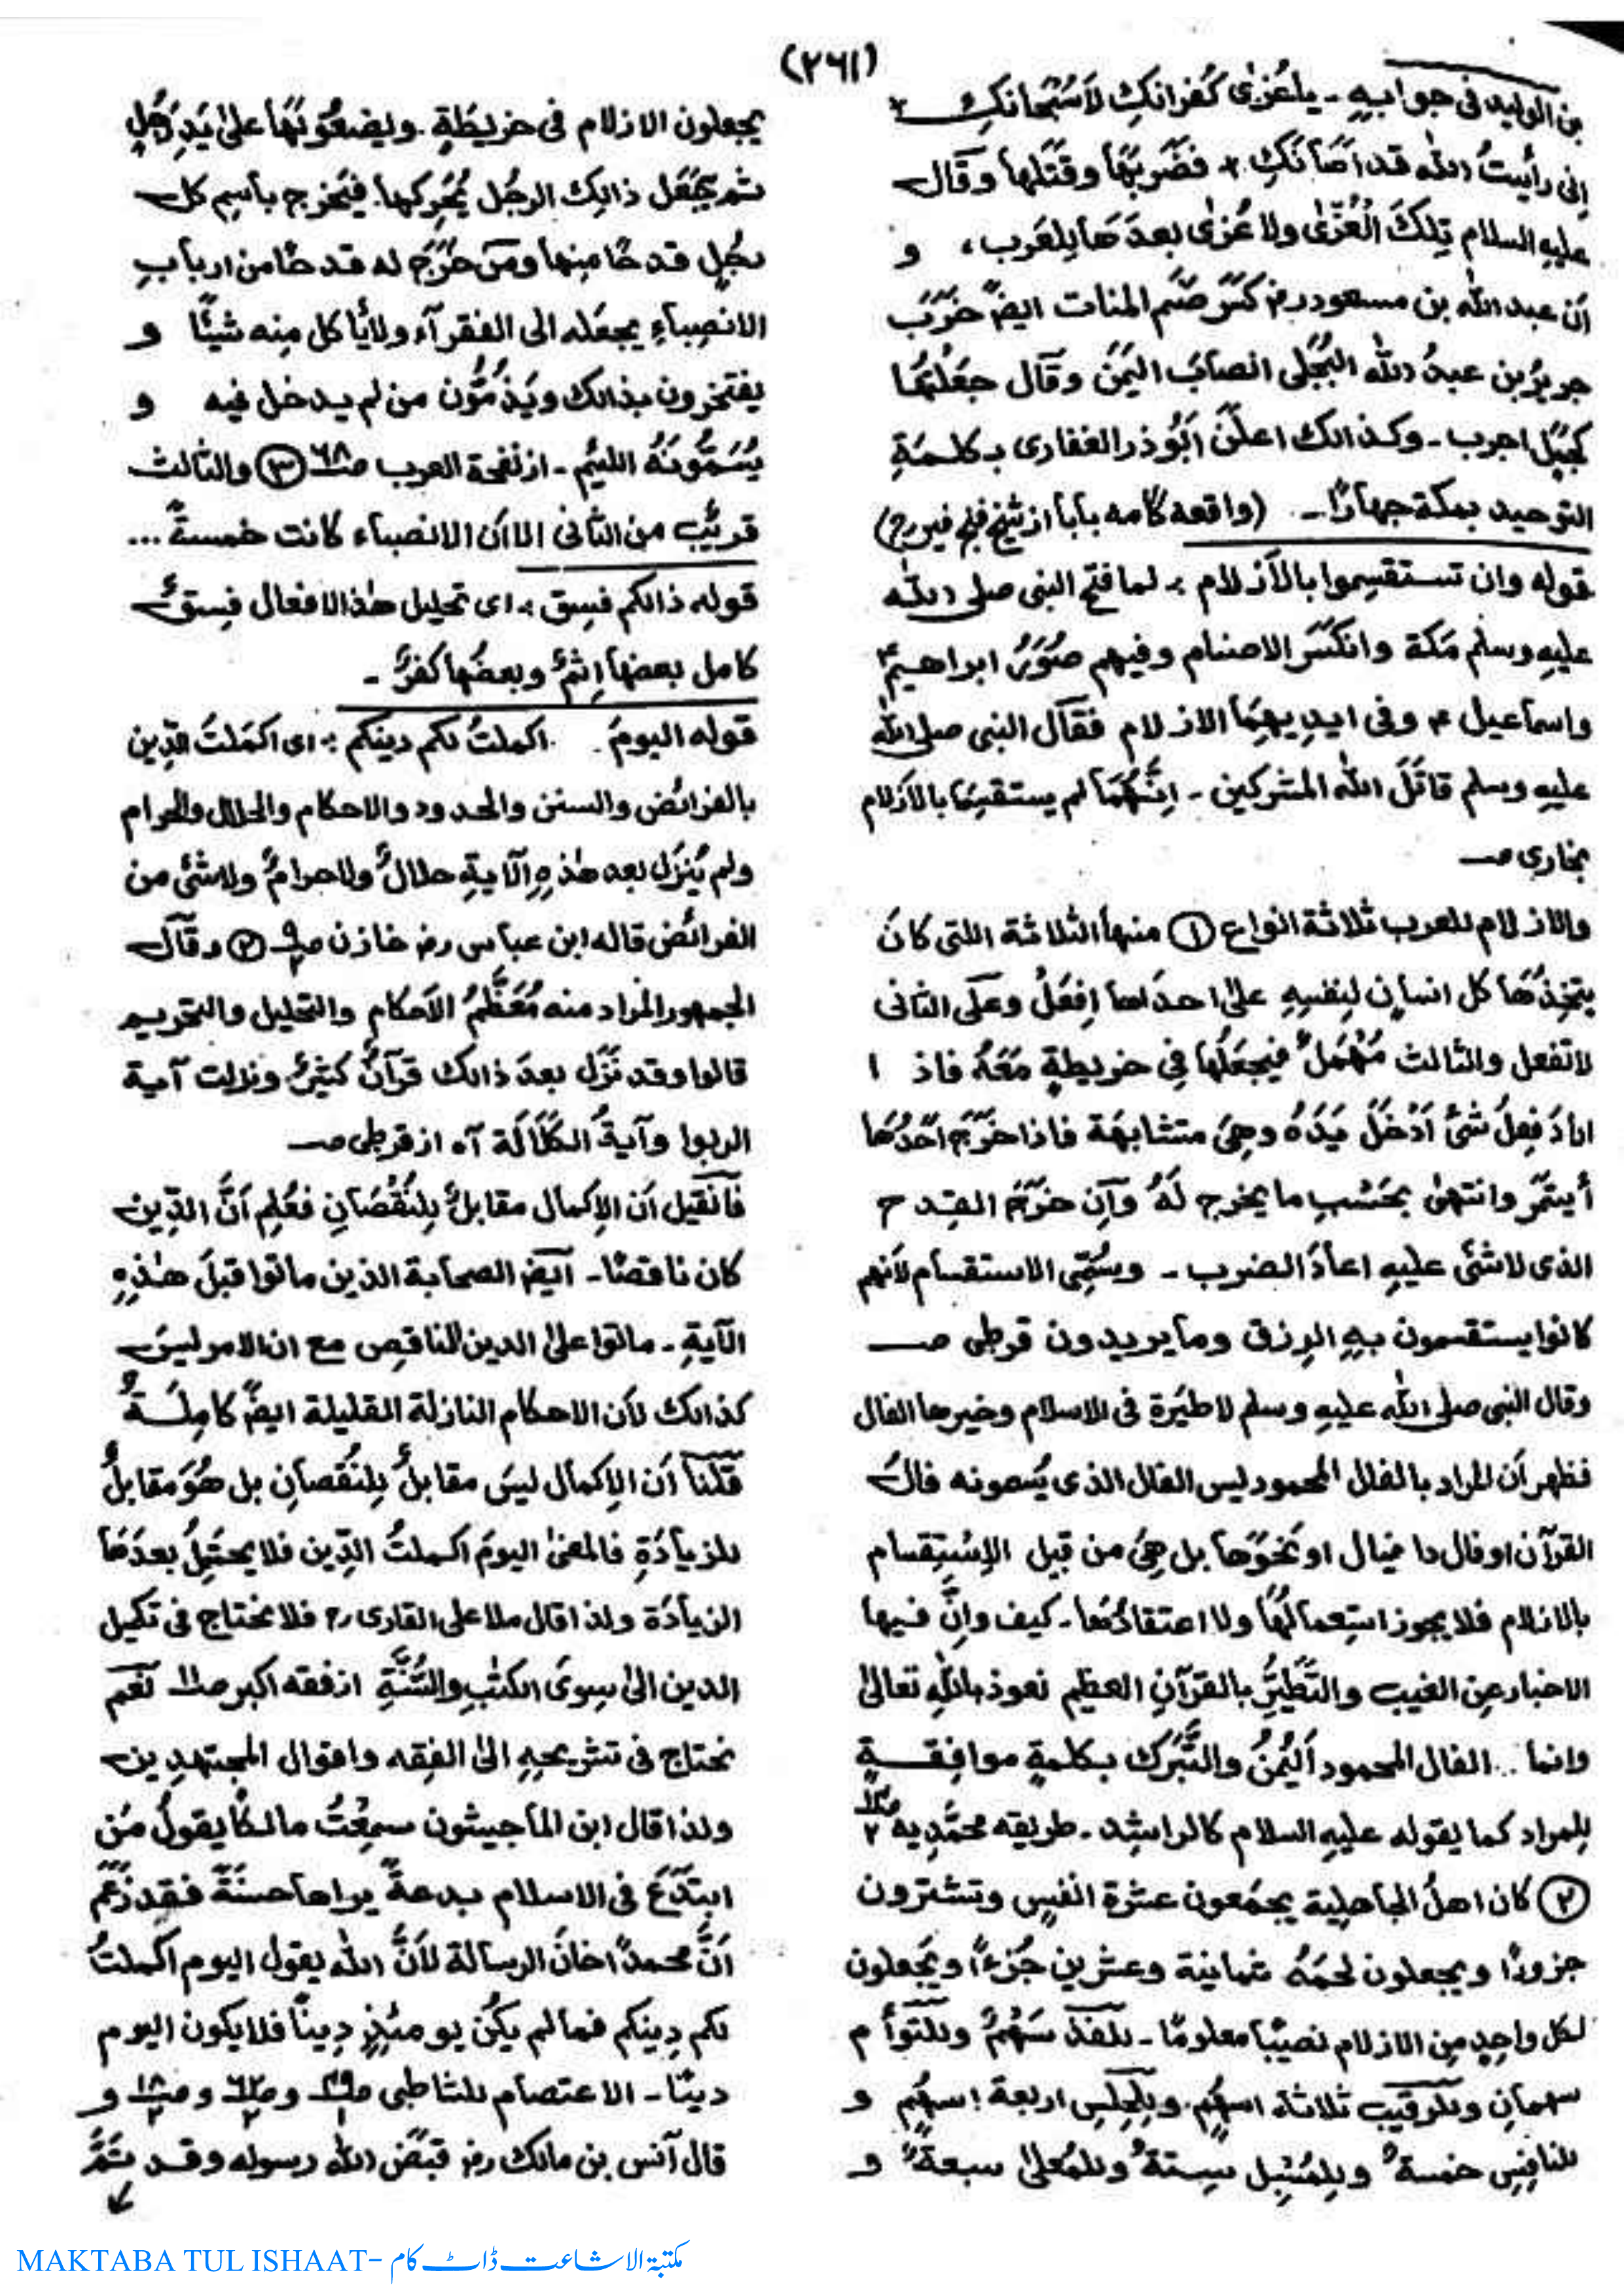 (٢٦١)
بن الوليد فى جوابه - يا عُزىٰ كُفرانكِ لاَ سُبْحانكِ
اِنى رأيتُ الله قد اَهَانكِ فضَرَبَهَا وقَتَلها وقَال
عليه السلام تِلكَ الْعُزّىٰ ولا عُزىٰ بعدَهَا لِلعَرب، و
اَن عبد الله بن مسعود رض كسَّرَ صَنَم المنات ايضً خرَّبَ
جريرُ بن عبدُ الله البُجَلى انصابَ اليَمَنَ وقَال جعَلْتُهَا
كجَبَلٍ اجرب - وكذالك اعلَنَ اَبُوذر الغفارى بكلمَةِ
التوحيد بمكة جهارًا - (واقعه كامه بابا از شيخ)
قوله وان تستقسِموا بالاَزلام : لما فتح النبى صلى الله
عليه وسلم مَكة وانكسَرَ الاصنام وفيهم صُوَرُ ابراهيمَ ؑ
واسماعيل ؑ وفى ايديهِمَا الازلام فقَال النبى صلى الله
عليه وسلم قاتَلَ الله المشركين - اِنَّهُمَا لم يستقسِمَا بالاَزلام
بخارى صـ
والازلام للعرب ثلاثة انواع ① منها الثلاثة اللتى كانَ
يتخِذُهَا كل انسانٍ لِنفسِهِ علىٰ احدَاها اِفعَلْ وعَلى الثانى
لا تفعل والثالث مُهْمَلٌ فيجعَلُها فِى خريطةٍ مَعَهُ فاذا
ارادَ فِعلَ شئ اَدْخَلَ يَدَهُ وهِىَ متشابهَة فاذا خَرَجَ اَحَدُهَا
أيتمَرَ وانتهىٰ بحَسْبِ ما يخرج لَهُ وَاِن خرَجَ القِدح
الذى لا شئَ عليهِ اعادَ الضرب - ويسُمّى الاستقسام لاَنهم
كانوا يستقسمون بهِ الرِزق وما يريدون قرطبى صـ
وقال النبى صلى الله عليهِ وسلم لا طيَرة فى الاسلام وخيرها الفال
فظهر اَن المراد بالفال المحمود ليس الفال الذى يُسمونه فالَ
القرآن او فال دانيال او نحوَها بل هِىَ من قبِيل الاِسْتِقسام
بالازلام فلا يجوز استِعمالهَا ولا اعتقادُهَا - كيف واِنَّ فيها
الاخبار عنِ الغيب والتَّطَيُّرِ بالقرآنِ العظيم نعوذ باللهِ تعالىٰ
وانما .. الفال المحمود اَليُمنُ والتَّبَرك بكلمةٍ موافِقـةٍ
لِلمراد كما يقوله عليهِ السلام كالراشِد - طريقه محمَّديه
② كان اهلُ الجاهلِية يجمَعون عشرة انفسٍ وتشترون
جزورًا ويجعلون لحمَهُ ثمانية وعشرين جُزءًا ويَجعلون
لكل واحِدٍ من الازلام نصيبًا معلومًا - للفذ سَهْمٌ وللتوأم
سهمانِ وللرقيب ثلاثة اسهُمٍ وللحِلسِ اربعة اسهُمٍ و
للنافِسِ خمسةٌ وللمُسْبِل سِتةٌ وللمُعلىٰ سبعةٌ و
يجعلون الازلام فى خريطَةٍ . ويضعُوْنَهَا علىٰ يَدِ رَجُلٍ
ثم يجْعَل ذالِك الرجُل يُحَرِكها. فيَخرج باسِم كل
رجُلٍ قدحًا مِنها ومَن خرَجَ له قدحًا من اربابِ
الانصِباءِ يجعَله الى الفقرآء ولا يأكل مِنه شيئًا و
يفتخرون بذالك ويَذُمُّون من لم يدخل فيه و
يُسَمُّونَهُ اللئيم - از نفحة العرب صـ٦٨ ③ والثالث
قريبٌ من الثانى الا اَن الانصباء كانت خمسةً ...
قوله ذالكم فسِق : اى تحليل هٰذ الافعال فِسقٌ
كامل بعضها اِثمٌ وبعضُها كفرٌ -
قوله اليومَ . اكملتُ لكم دينكم : اى اكمَلتُ الدِّين
بالفرائض والسنن والحدود والاحكام والحلال والحرام
ولم يُنزَل بعد هٰذهِ الآيةِ حلالٌ ولا حرامٌ ولا شئٌ من
الفرائض قاله ابن عباس رض خازن صـ ② وقَال
الجمهور المراد منه مُعَظَّمُ الاَحكام والتحليل والتحريم
قالوا وقد نزَل بعدَ ذالك قرآنٌ كثيرٌ ونزلت آية
الربوا وآيةُ الكَلَالَة آه از قرطبى صـ
فَاِنْ قيل اَن الاِكمال مقابلٌ لِلنقْصَانِ فعُلِم اَنَّ الدِّين
كان ناقصًا - ايضً الصحابة الذين ماتوا قبلَ هٰذهِ
الآيةِ - ماتوا على الدين الناقِصِ مع ان الامر ليسَ
كذالك لاَن الاحكام النازلة القليلة ايضً كامِلَةٌ
قُلنَا اَن الاِكمال ليسَ مقابلٌ لِلنقصانِ بل هُوَ مقابلٌ
للزيادَةِ فالمعنىٰ اليومَ اكملتُ الدِّين فلا يحتَمِلُ بعدَهَا
الزيادَة ولذا قال ملا على القارى رح فلا نحتاج فى تكميل
الدين الىٰ سِوىَ الكتٰبِ والسُّنَّةِ از فقه اكبر صـ نَعَم
نحتاج فى تشريحِهِ الىٰ الفِقه واقوال المجتهِدِين
ولذا قال ابن الماجيشون سمِعْتُ مالكًا يقولُ مَن
ابتَدَعَ فى الاسلام بدعةً يراها حسنَةً فقد زَعَمَ
اَنَّ محمدًا خانَ الرسالة لاَنَّ الله يقول اليوم اكملتُ
لكم دِينكم فما لم يكُن يومئِذٍ دِينًا فلا يكون اليوم
دينًا - الاعتصام للشاطبى صـ و صـ و صـ و
قال اَنس بن مالك رض قبَضَ الله رسوله وقد تمَّ
MAKTABA TUL ISHAAT- مکتبۃ الاشاعت ڈاٹ کام